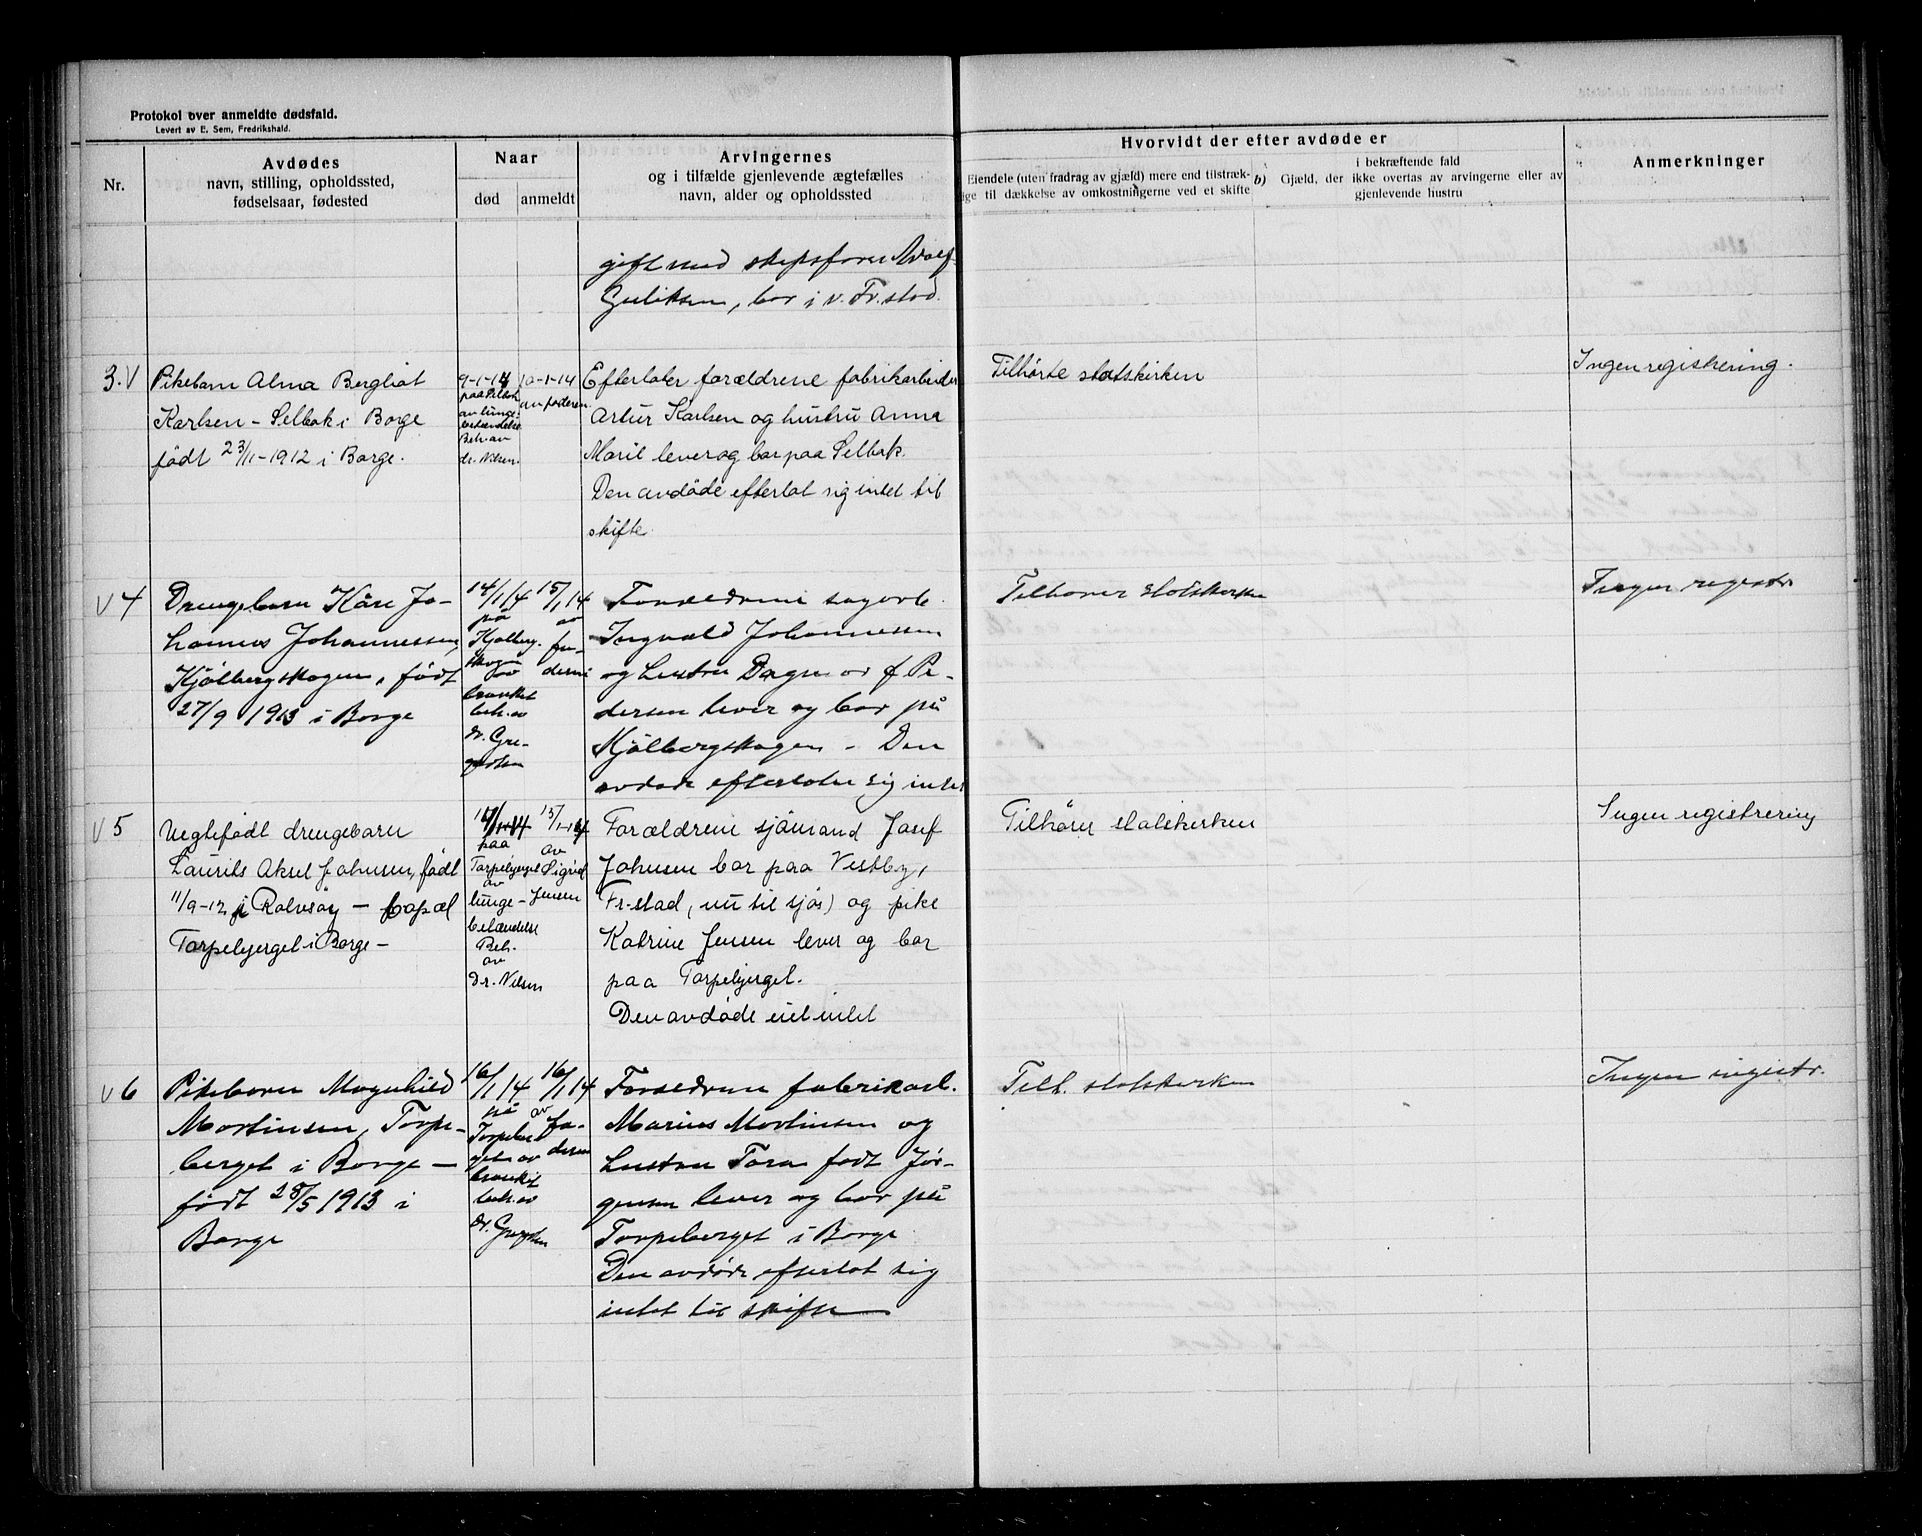 Protokol over anmeldte dødsfald.
Levert av E. Sem, Fredrikshald.
Nr.
Avdødes
navn, stilling, opholdssted,
fødselsaar, fødested
Naar
død
anmeldt
Arvingernes
og i tilfælde gjenlevende ægtefælles
navn, alder og opholdssted
Hvorvidt der efter avdøde er
Eiendele (uten fradrag av gjæld) mere end tilstræk-
ige til dækkelse av omkostningerne ved et skifte
b)
i bekræftende fald
Gjæld, der ikke overtas av arvingerne eller av
gjenlevende hustru
Anmerkninger
gift med skipsfører Adolf
Guliksen, bor i v. Fr.stad.
3. V
Pikebarn Alma Bergliot
Karlsen - Selbak i Borge
født 23/11-1912 i Borge.
9-1-14
paa Selbak
av lunge-
betændelse
Beh. av
dr. Nilsen.
10-1-14
av faderen.
Efterlater forældrene fabrikarbeider
Artur Karlsen og hustru Anna
Maril lever og bor paa Selbak.
Den avdøde efterlot sig intet til
skifte.
Tilhørte statskirken
Ingen registrering.
V 4
Drengebarn Kåre Jo-
hannes Johannessen,
Kjølbergskogen, født
27/9 1913 i Borge
14/1 14
på
Kjølberg-
skogen
av
bronkit
beh. av
dr. Gre-
gersen
15/1 14
av
fa-
deren
Forældrene sagarb.
Ingvald Johannessen
og hustru Dagmar f. Pe-
dersen lever og bor på
Kjølbergskogen - Den
avdøde efterlater sig intet
Tilhører statskirken
Ingen registr.
V 5
Uegtefødt drengebarn
Laurits Aksel Johnsen, født
11/9-12, i Rolvsøy -
Torpebjerget i Borge -
paa
Torpebjerget
av
lunge-
betændelse
Beh.
av
Dr. Nilsen
15/1-14
av
Sigrid
Jensen
Forældrene sjömand Josef
Johnsen bor paa Vestby,
Fr-stad, (nu til sjøs) og pike
Katrine Jensen lever og bor
paa Torpebjerget.
Den avdøde eiet intet
Tilhører statskirken
Ingen registrering
V 6
Pikebarn Magnhild
Martinsen, Torpe-
berget i Borge -
født 28/5 1913 i
Borge
16/1 14
på
Torpeber
get av
bronkit
beh. av
dr. Gregersen
16/1 14
av
fa-
deren
Forældrene fabrikarb.
Marius Martinsen og
hustru Tora født Jør-
gensen lever og bor på
Torpeberget i Borge
Den avdøde efterlot sig
intet til skifte
Tilh. statskirken
Ingen registr.